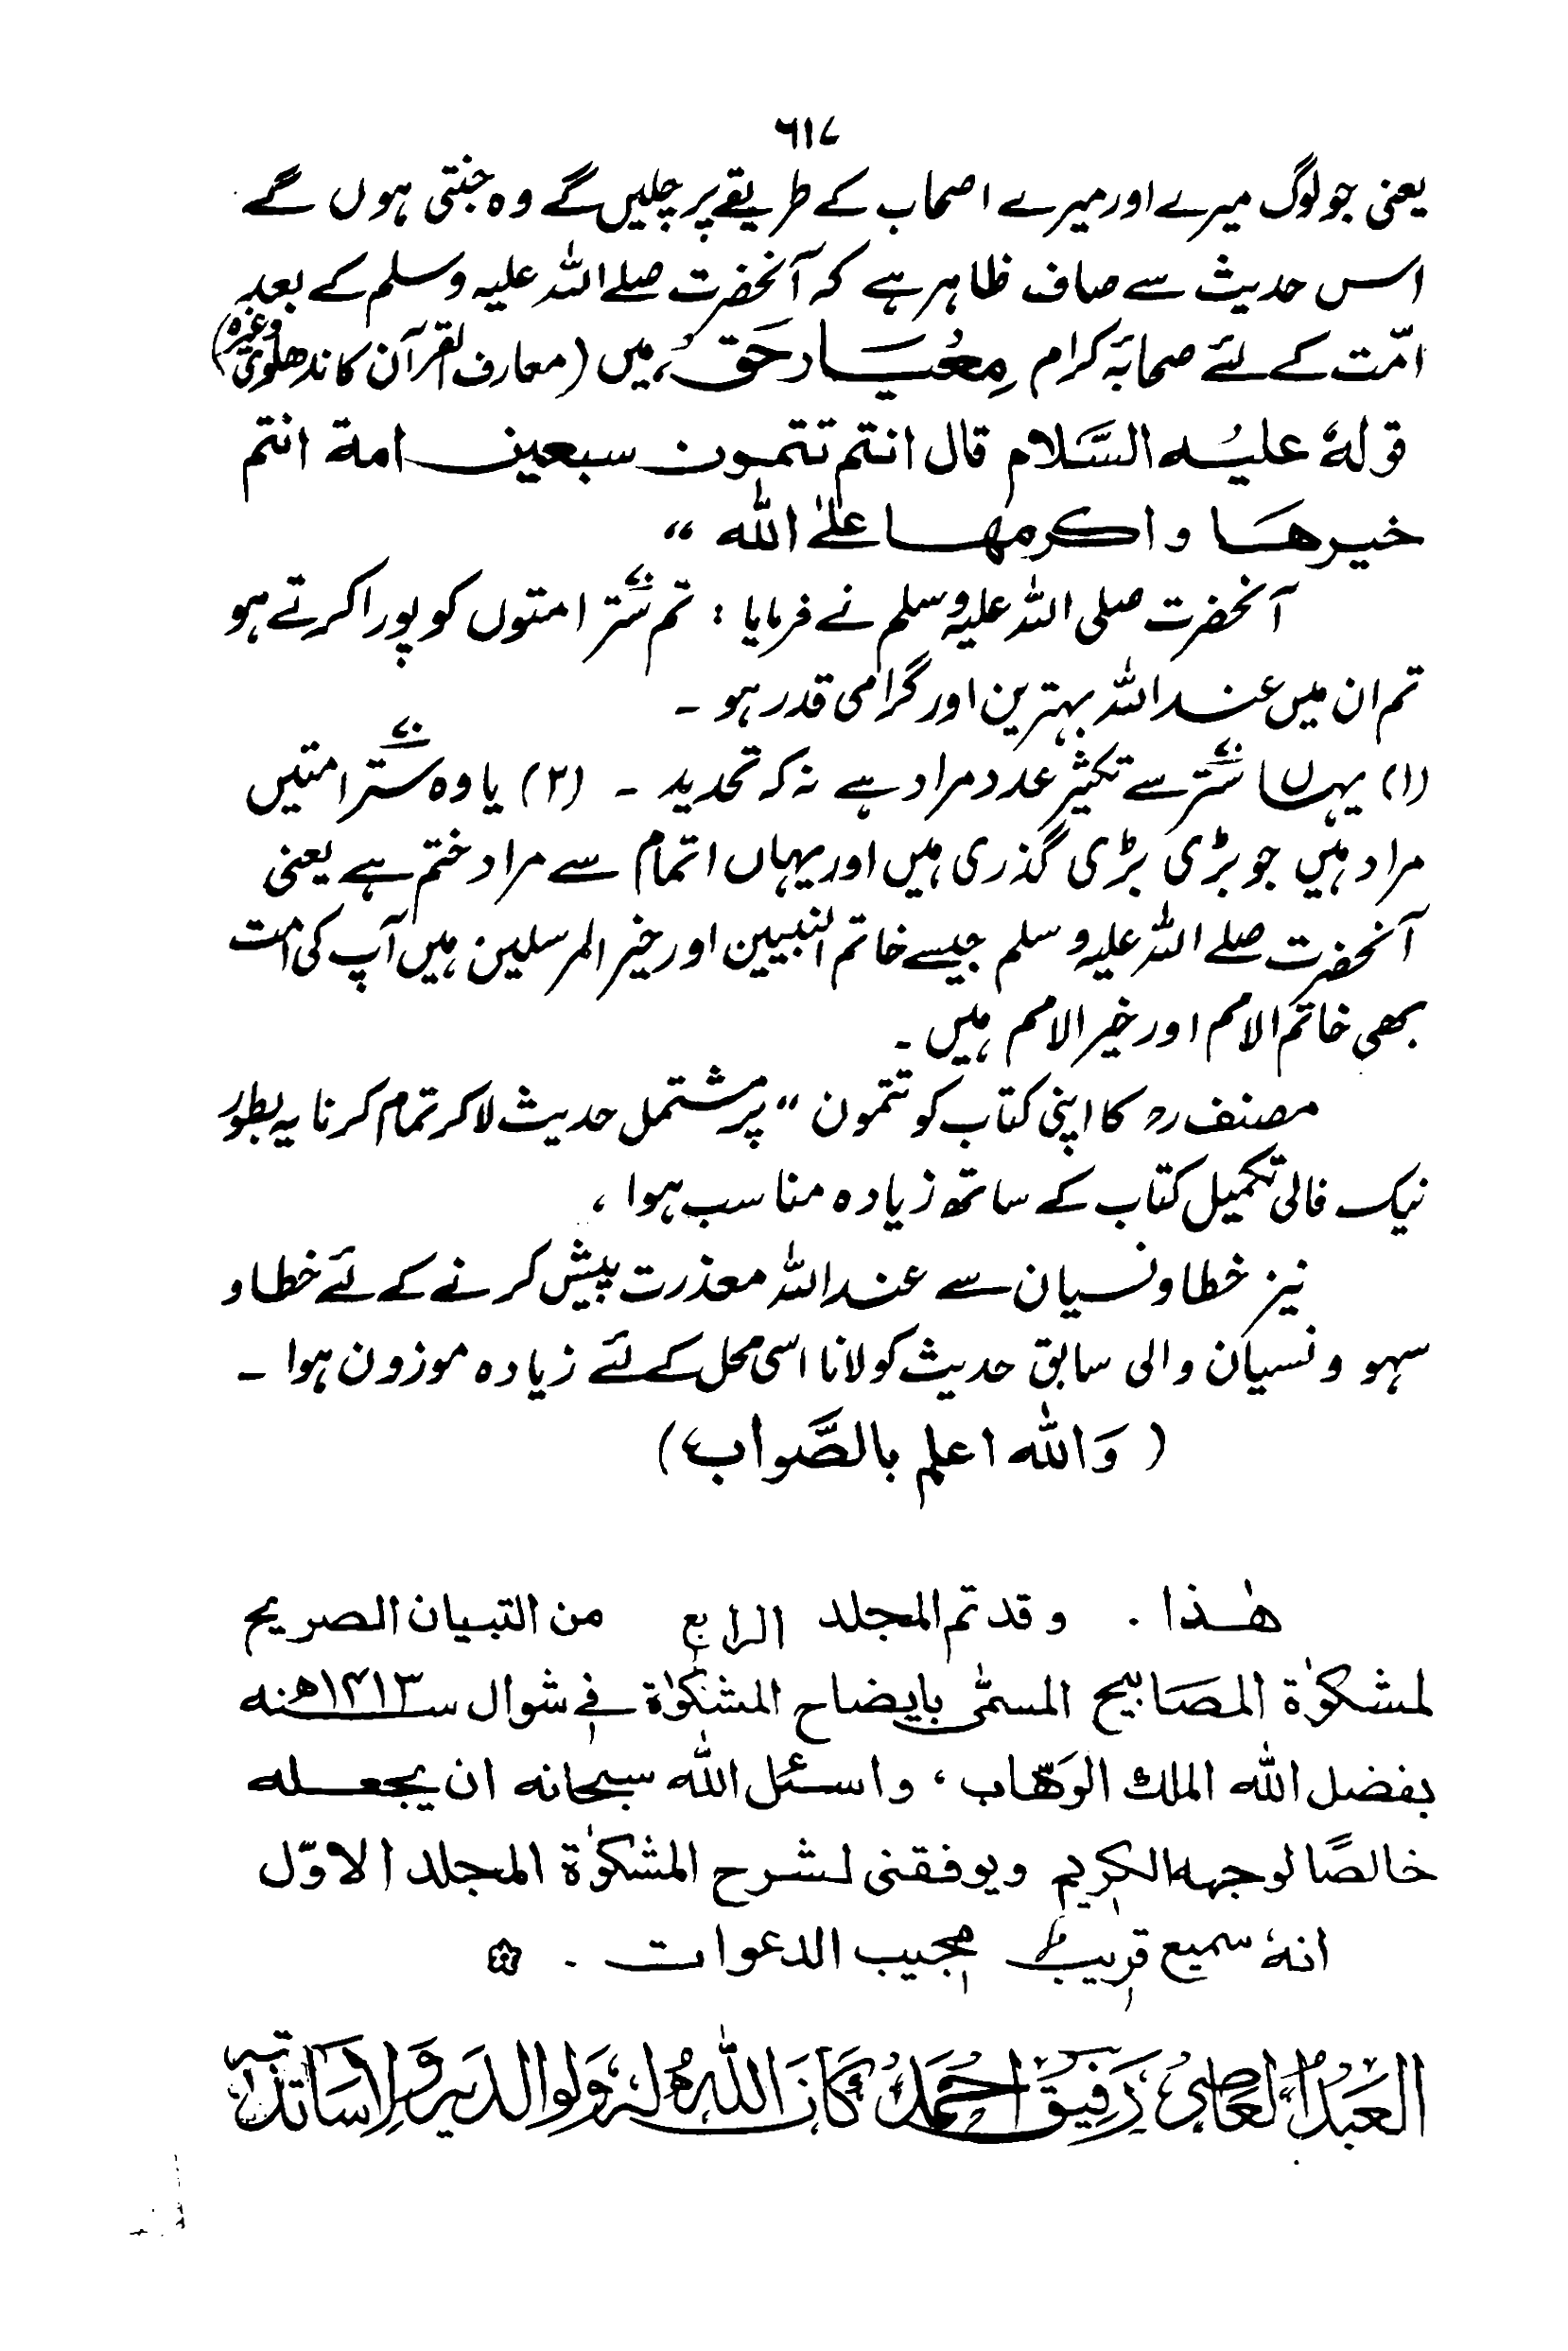 ۶۱۷
یعنی جو لوگ میرے اور میرے اصحاب کے طریقے پر چلیں گے وہ جنتی ہوں گے
اس حدیث سے صاف ظاہر ہے کہ آنحضرت صلے اللہ علیہ وسلم کے بعد
امّت کے لئے صحابۂ کرام مِعْیَار حَق ہیں (معارف القرآن کاندھلویؒ وغیرہ)
قولهٗ علیْه السَّلام قال انتم تتمون سبعین امة انتم
خیرهَا واکرمها علیٰ الله ״
آنحضرت صلی اللہ علیہ وسلم نے فرمایا : تم ستّر۷۰ امتوں کو پورا کرتے ہو
تم ان میں عند اللہ بہترین اور گرامی قدر ہو ۔
(۱) یہاں ستّر۷۰ سے تکثیر عدد مراد ہے نہ کہ تحدید ۔ (۲) یا وہ ستّر۷۰ امتیں
مراد ہیں جو بڑی بڑی گذری ہیں اور یہاں اتمام سے مراد ختم ہے یعنی
آنحضرت صلے اللہ علیہ وسلم جیسے خاتم النبیین اور خیر المرسلین ہیں آپ کی امت
بھی خاتم الامم اور خیر الامم ہیں ۔
مصنف رح کا اپنی کتاب کو تتمون ״ پر مشتمل حدیث لاکر تمام کرنا یہ بطور
نیک فالی تکمیل کتاب کے ساتھ زیادہ مناسب ہوا ،
نیز خطا و نسیان سے عند اللہ معذرت پیش کرنے کے لئے خطا و
سہو و نسیان والی سابق حدیث کو لانا اسی محل کے لئے زیادہ موزون ہوا ۔
( وَالله اعلم بالصَّواب )
هٰذا . وقد تم المجلد الرابع من التبیان الصریح
لمشکوٰة المصابیح المسمّٰی بایضاح المشکوٰة فی شوال سـ۱۴۱۳هـنه
بفضل الله الملك الوَهّاب ، واسئل الله سبحانه ان یجعله
خالصًا لوجهه الکریم ویوفقنی لشرح المشکوٰة المجلد الاوّل
انهٗ سمیع قریب مجیب الدعوات .
العَبدُ العَاصِیْ رَفِیْق اَحْمَد کَانَ اللّٰهُ لَهٗ وَلِوَالِدَیْهِ وَلِاَسَاتِذَتِه